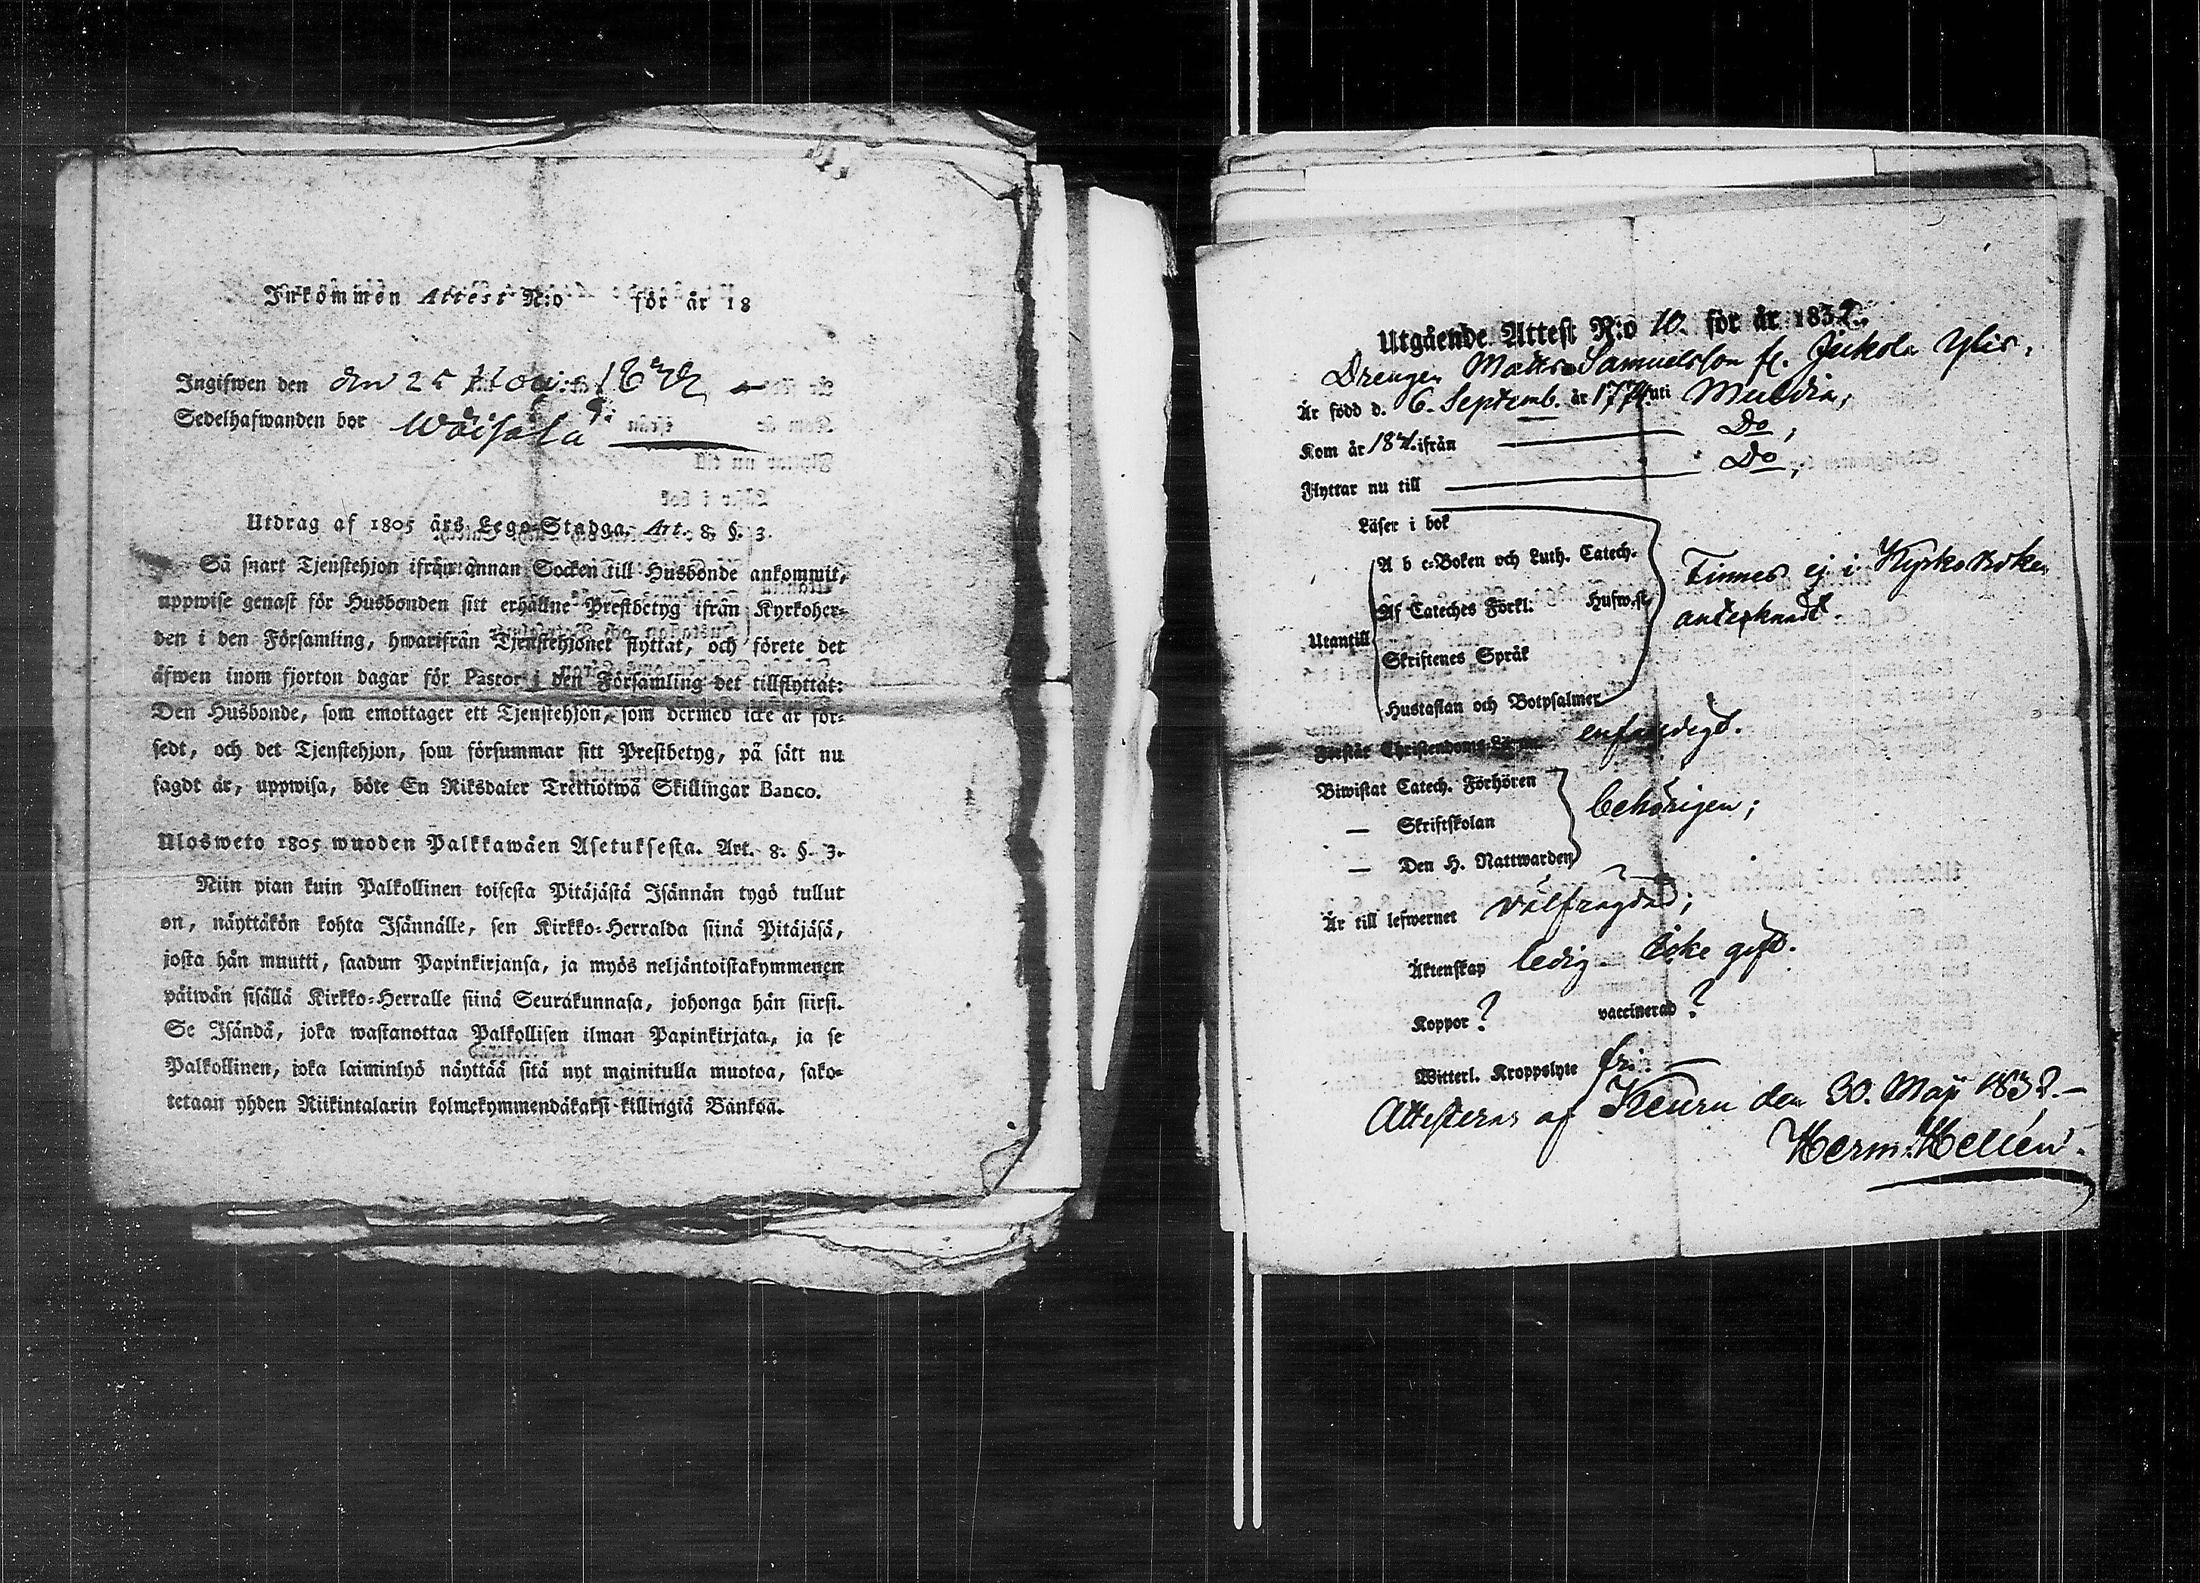 Inkommen Attest N:o för år 18
Ingifwen den den 25
Sedelhafwanden bor Wäisälä
Utdrag af 1805 års Lego-Stadga. Art. 8. §. 3.
Så snart Tjenstehjon ifrån annan Socken till Husbonde ankommit,
uppwise genast för Husbonden sitt erhållne Prestbetyg ifrån Kyrkoher-
den i den Församling, hwarifrån Tjenstehjonet flyttat, och förete det
äfwen inom fjorton dagar för Pastor i den Församling det tillflyttat:
Den Husbonde, som emottager ett Tjenstehjon, som dermed icke är för-
sedt, och det Tjenstehjon, som försummar sitt Prestbetyg, på sätt nu
sagdt är, uppwisa, böte En Riksdaler Trettiotwå Skillingar Banco.
Ulosweto 1805 wuoden Palkkawäen Asetuksesta. Art. 8. §. 3.
Niin pian kuin Palkollinen toisesta Pitäjästä Isännän tygö tullut
on, näyttäkön kohta Isännälle, sen Kirkko-Herralda siinä Pitäjäsä,
josta hän muutti, saadun Papinkirjansa, ja myös neljäntoistakymmenen
päiwän sisällä Kirkko-Herralle siinä Seurakunnasa, johonga hän siirsi.
Se Isändä, joka wastanottaa Palkollisen ilman Papinkirjata, ja se
Palkollinen, joka laiminlyö näyttää sitä nyt mainitulla muotoa, sako-
tetaan yhden Riikintalarin kolmekymmendäkaksi killingiä Bankoa.
Utgående Attest N:o 10. för år 1832.
Drengen Matts Samuelsson fr. Jukola Ylis,
Är född d. 6. Septemb. år 1774. uti Muldia,
Kom år 18 ifrån Do;
Flyttar nu till Do,
Läser i bok
A b c-Boken och Luth. Catech.
Finnes ej i Kyrkoboken
Af Cateches Förkl. Husw.st
antecknadt.
Utantill
Skriftenes Språk
Hustaflan och Botpsalmer
Förstår Christendoms-Läran enfaldigt.
Biwistat Catech. Förhören
— Skriftskolan behörigen;
— Den H. Nattwarden
Är till lefwernet välfrägdad;
Äktenskap ledig. Icke gift.
Koppor ? vaccinerad ?
Witterl. Kroppslyte fri. —
Attesteras af Keuru den 30. Maji 1832.—
Herm: Hellén.